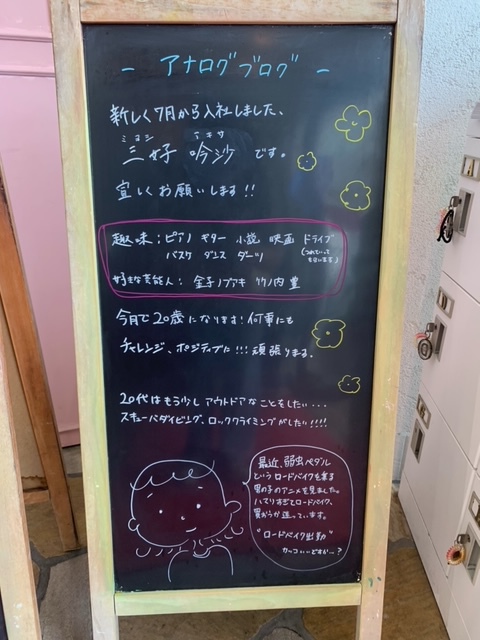 - アナログブログ -
新しく7月から入社しました、
ミヨシ アキサ
三好 吟沙 です。
宜しくお願いします!!
趣味:ピアノ ギター 小説 映画 ドライブ
バスケ ダンス ダーツ (つれていってもらいます)
好きな芸能人: 金子ノブアキ 竹ノ内 豊
今月で20歳になります!何事にも
チャレンジ、ポジティブに!!!頑張りまる。
20代はもう少しアウトドアなことをしたい...
スキューバダイビング、ロッククライミングがしたい!!!!
最近、弱虫ペダル
というロードバイクを乗る
男の子のアニメを見ました。
ハマりすぎてロードバイク、
買おうか迷っています。
"ロードバイク出勤"
カッコいいですか...?